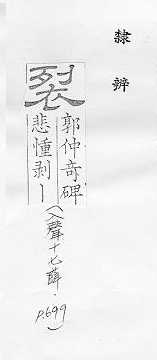 隸辨
裂
郭仲奇碑
悲慟剥｜
(入聲十七薛.
P.699)